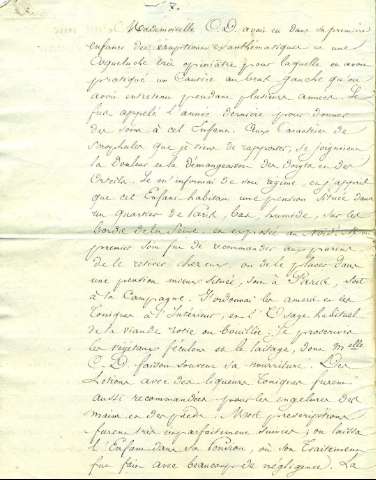 7.
Mademoiselle C. D. avait eu dans sa première
enfance des éruptions exanthématiques et une
Coqueluche très opiniâtre pour laquelle on avait
pratiqué un Cautère au bras gauche qu'on
avait entretenu pendant plusieurs années. Je
fus appelé l'année dernière pour donner
des soins à cet Enfant. Aux Caractères de
Scrophules que je viens de rapporter, se joignaient
la douleur et la démangeaison des doigts et des
Orteils. Je m'informai de son régime, et j'appris
que cet Enfant habitait une pension située dans
un quartier de Paris, bas, humide, sur les
bords de la Seine, et exposée au Nord. Mon
premier soin fut de recommander aux parents
de le retirer chez eux, ou de le placer dans
une pension mieux située, soit à Paris, soit
à la Campagne. J'ordonnai les amers et les
toniques à l'intérieur, et l'Usage habituel
de la viande rotie ou bouillie. Je proscrivis
les végétaux féculens et le laitage, dont Melle
C. D. faisait souvent sa nourriture. Des
Lotions avec des liqueurs toniques furent
aussi recommandées pour les engelures des
mains et des pieds. Mes prescriptions
furent très imparfaitement suivies; on laissa
l'Enfant dans sa Pension, où son Traitement
fut fait avec beaucoup de négligence. La